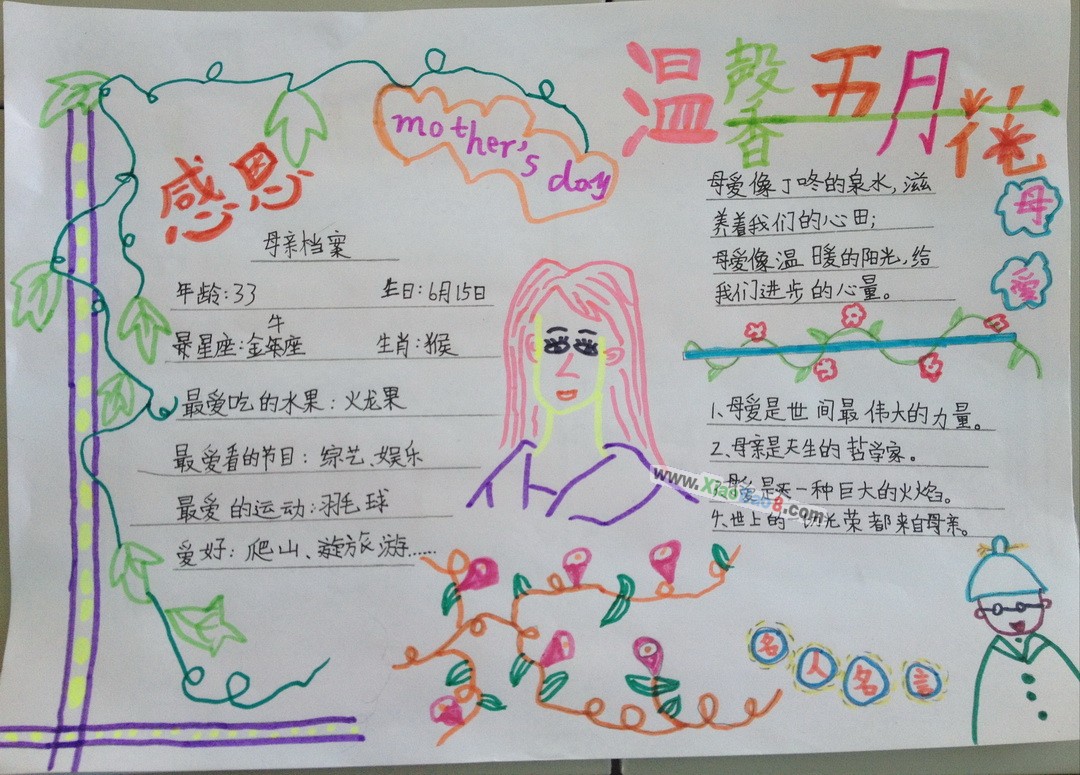 感恩
mother's day
母亲档案
年龄:33 生日:6月15日
星座:金牛座 生肖:猴
最爱吃的水果:火龙果
最爱看的节目:综艺、娱乐
最爱的运动:羽毛球
爱好:爬山、旅游……
温馨五月花
母爱
母爱像丁咚的泉水,滋
养着我们的心田;
母爱像温暖的阳光,给
我们进步的心量。
1、母爱是世间最伟大的力量。
2、母亲是天生的哲学家。
母爱是一种巨大的火焰。
世上的 光荣都来自母亲。
名人名言